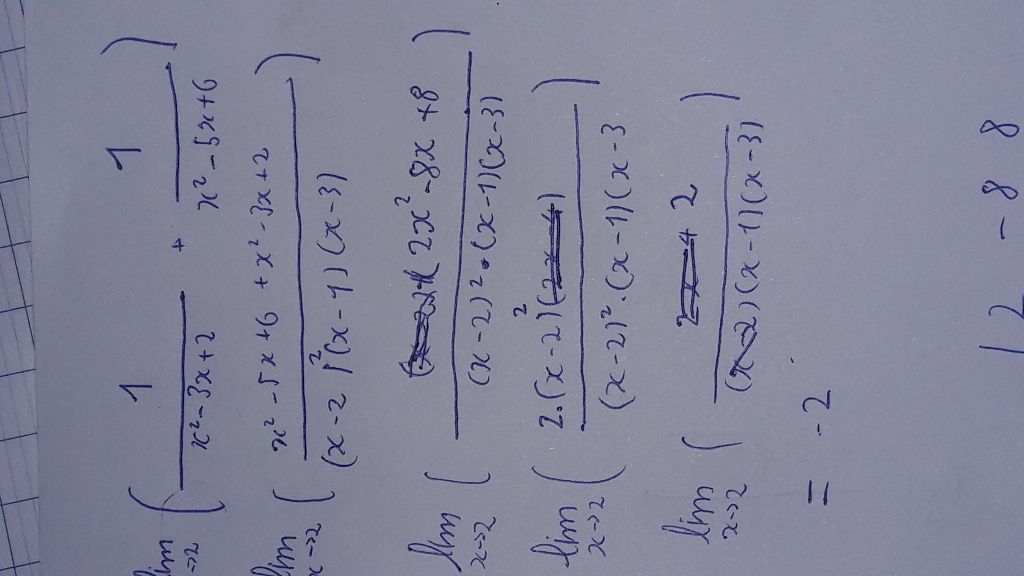 lim x→2 ( 1/(x² - 3x + 2) + 1/(x² - 5x + 6) )
lim x→2 ( (x² - 5x + 6 + x² - 3x + 2)/((x - 2)²(x - 1)(x - 3)) )
lim x→2 ( (2x² - 8x + 8)/((x - 2)² · (x - 1)(x - 3)) )
lim x→2 ( 2·(x - 2)²/((x - 2)² · (x - 1)(x - 3 )
lim x→2 ( 2/((x - 2)(x - 1)(x - 3)) )
= -2
2 - 8 8